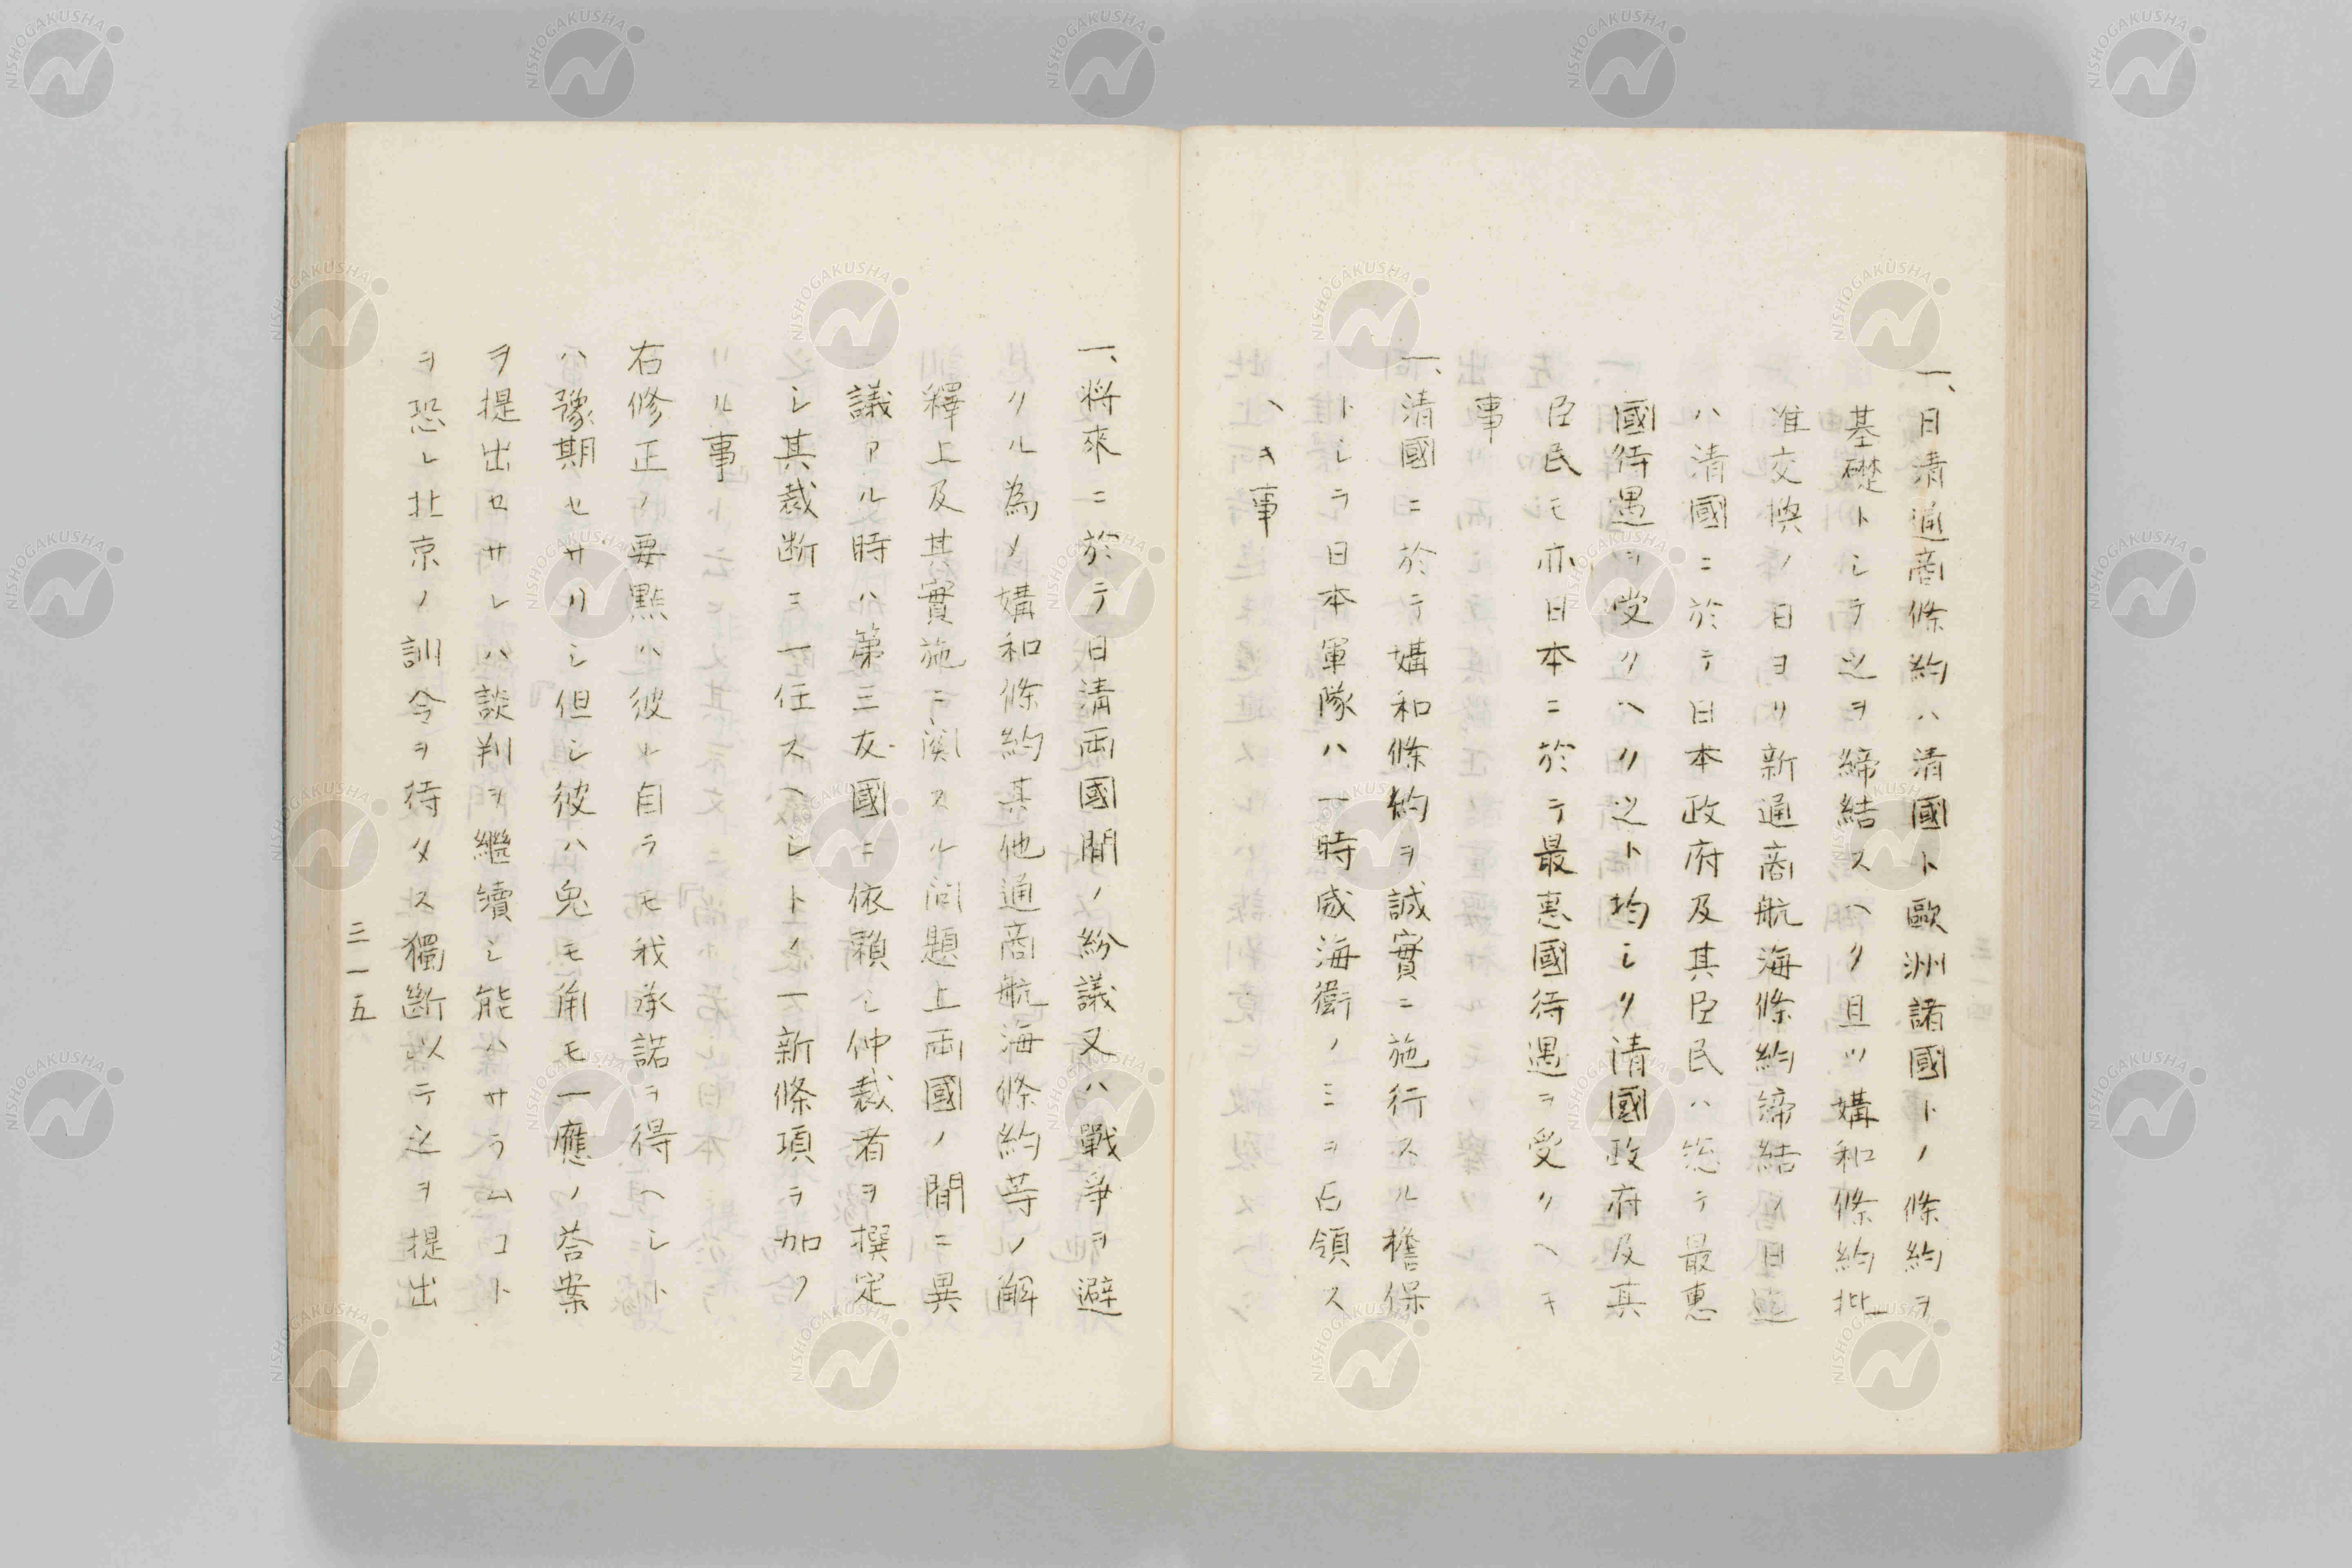 一、日清通商條約ハ清國ト歐洲諸國トノ條約ヲ
基礎トシテ之ヲ締結スヘク且ツ媾和條約批
准交換ノ日ヨリ新通商航海條約締結ノ日迄
ハ清國ニ於テ日本政府及其臣民ハ總テ最惠
國待遇ヲ受クヘク之ト均シク清國政府及其
臣民モ亦日本ニ於テ最惠國待遇ヲ受クヘキ
事
一、清國ニ於テ媾和條約ヲ誠實ニ施行スル擔保
トシテ日本軍隊ハ一時威海衛ノミヲ占領ス
ヘキ事
一、將來ニ於テ日清両國間ノ紛議又ハ戰爭ヲ避
クル為メ媾和條約其他通商航海條約等ノ解
釋上及其實施ニ関スル問題上両國ノ間ニ異
議アル時ハ第三友國ニ依賴シ仲裁者ヲ撰定
シ其裁断ニ一任スヘシトノ一新條項ヲ加フ
ル事
右修正ノ要點ハ彼レ自ラモ我承諾ヲ得ヘシト
ハ豫期セサリシ但シ彼ハ兎モ角モ一應ノ荅案
ヲ提出セサレハ談判ヲ繼續シ能ハサラムコト
ヲ恐レ北京ノ訓令ヲ待タス獨斷以テ之ヲ提出
三一五
NISHOGAKUSHA